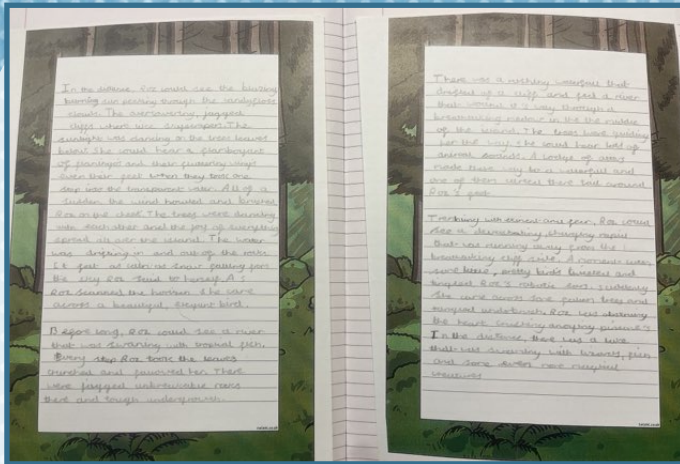 In the distance, Roz could see the blazing
burning sun peeking through the candyfloss
clouds. The overtowering, jagged
cliffs were like skyscrapers. The
sunlight was dancing on the trees leaves
below. She could hear a flamboyant
of flamingos and their wings
even their feet when they took one
step into the transparent water. All of a
sudden, the wind howled and
Roz on the cheek. The trees were dancing
with each other and the joy of everything
spread all over the island. The water
was drifting in and out of the rocks
It felt as calm as snow falling from
the sky Roz said to herself. As
Roz scanned the horizon, she came
across a beautiful, elegant bird.
Before long, Roz could see a river
that was swarming with tropical fish.
Every step Roz took the leaves
crunched and followed her. There
were jagged unbreakable rocks
there and tough undergrowth.
There was a rushing waterfall that
dropped of a cliff and feed a river
that its way through a
breathtaking medow in the the middle
of the island. The trees were guiding
her the way. She could hear lots of
animal sounds. A bodge of otters
made there way to a waterfall and
one of them curled there tail around
Roz's feet.
Trembling with and fear, Roz could
see a devastating changing rapid
that was running away from the
breathtaking cliff side. A moments later,
some blue, pretty birds and
Roz's robotic ears. Suddenly
she came across some fallen trees and
tangled underbrush. Roz was
the heart
In the distance, there was a lake
that was swarming with lizards, fish
and some even more
creatures